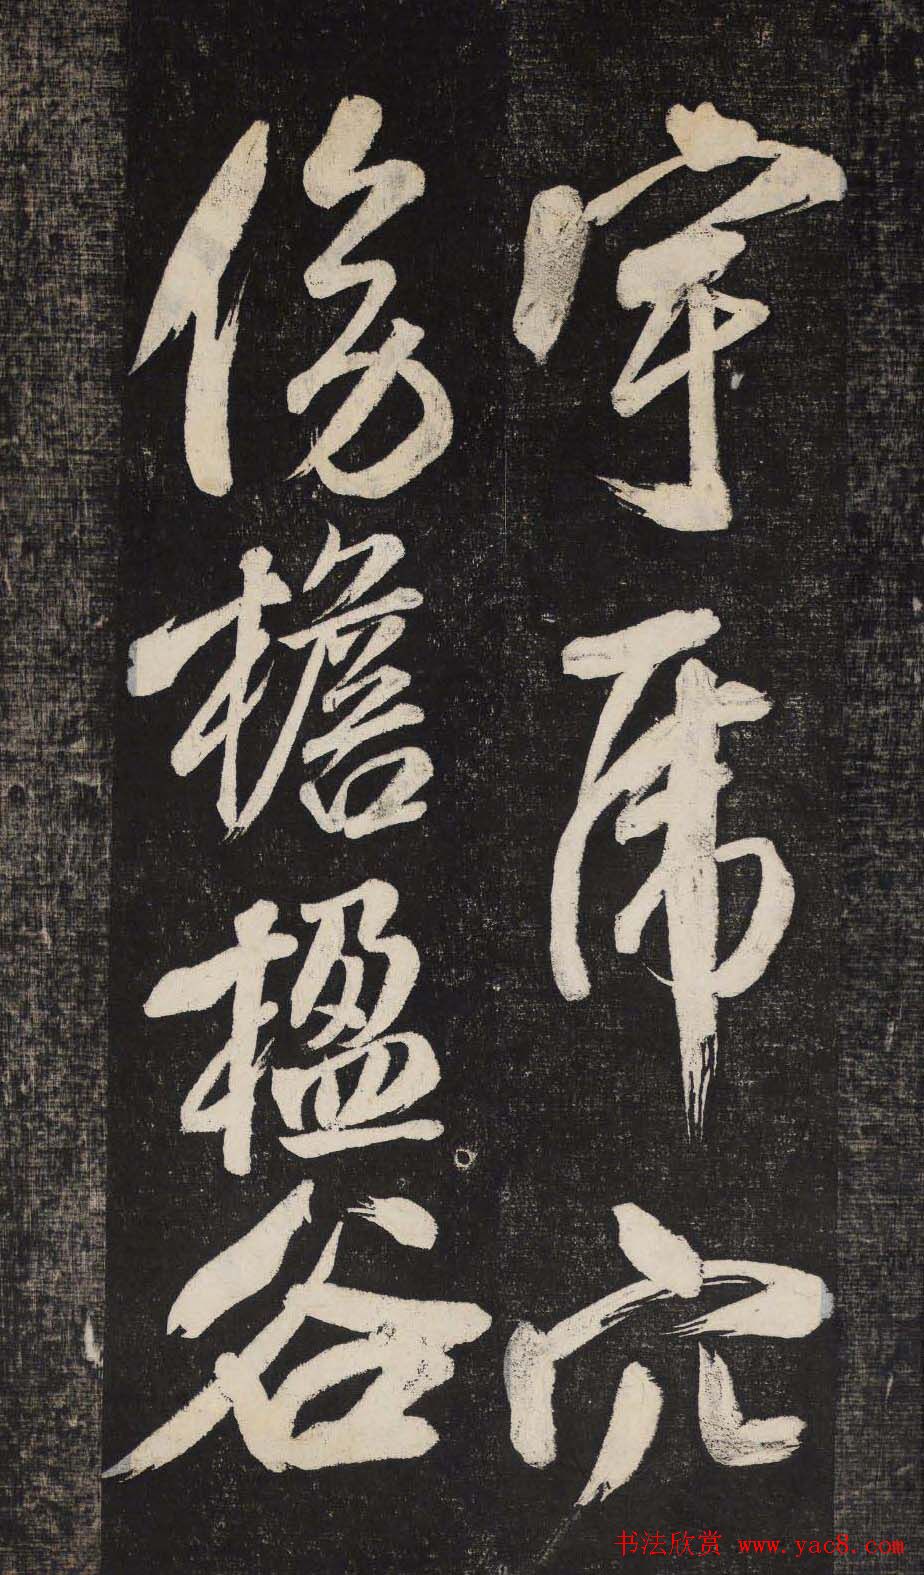 宇虎穴
傍檐楹谷
书法欣赏 www.yac8.com